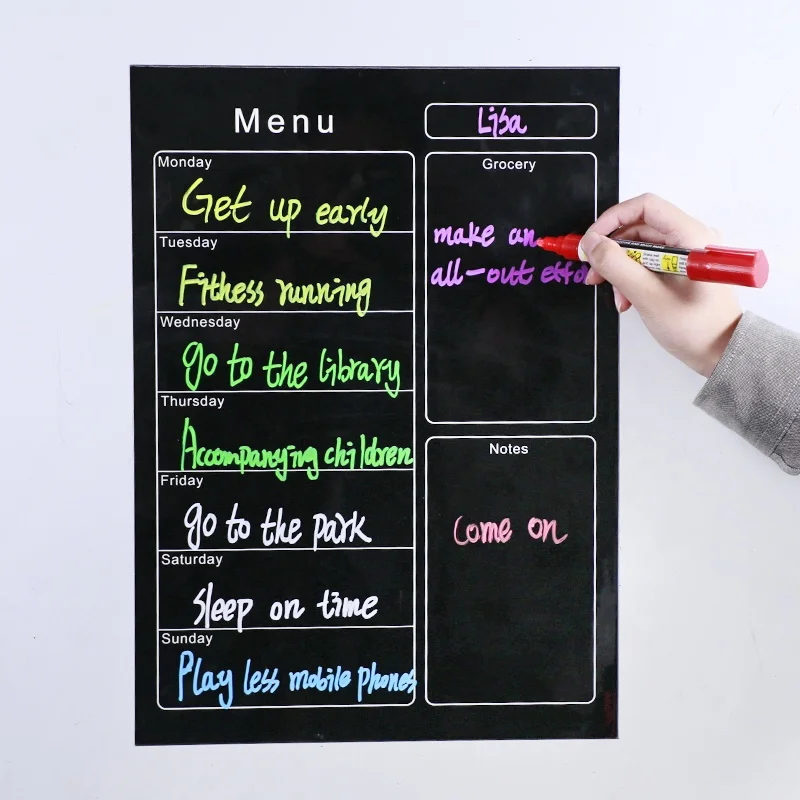 Menu
Liba
Monday
Get up early
Tuesday
Fithess running
Wednesday
go to the library
Thursday
Accompanying children
Friday
go to the park
Saturday
Sleep on time
Sunday
Play less mobile phones
Grocery
make an
all-out effo
Notes
Come on